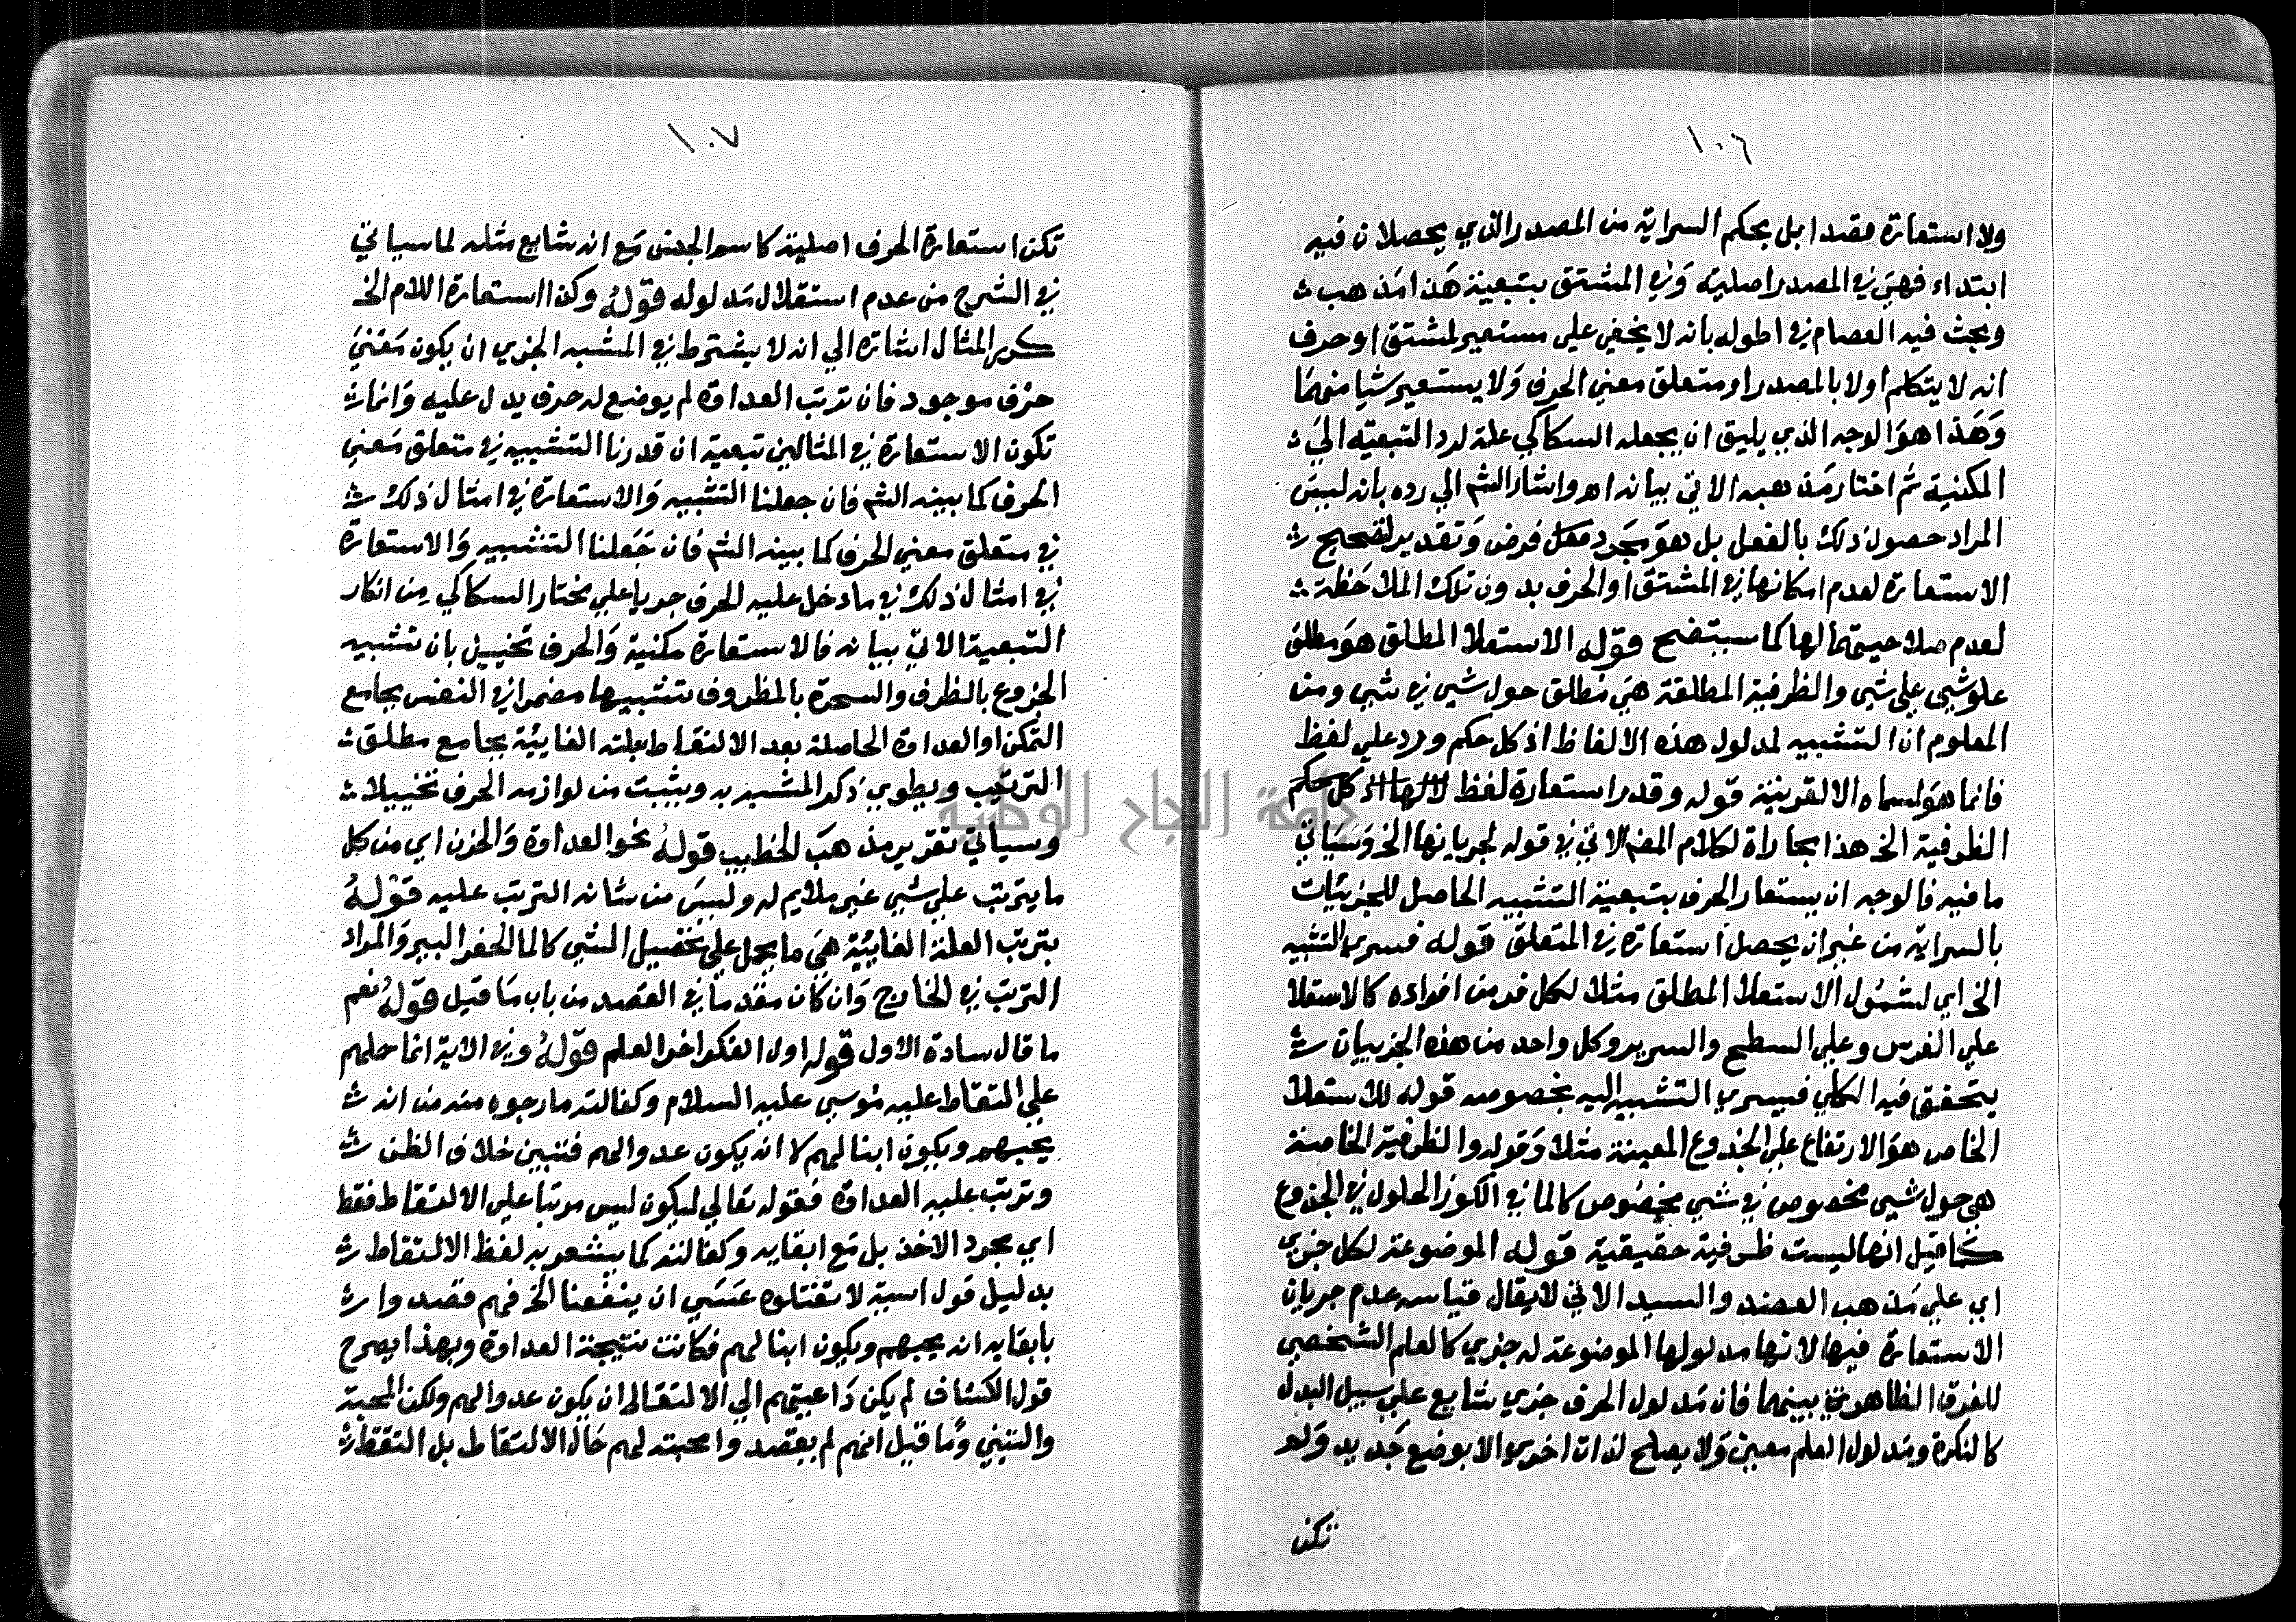 ١٠٦
ولا استعارة قصدا بل بحكم السراية من المصدر الذي يحصلان فيه
ابتداء فهي في المصدر اصلية وفي المشتق بتبعية هذا مذهب
وبحث فيه العصام في اطوله بانه لا يخفي علي مستعير لمشتق او حرف
انه لا يتكلم اولا بالمصدر او متعلق معني الحرف ولا يستعير شيا منهما
وهذا هو الوجه الذي يليق ان يجعله السكاكي علة لرد التبعية الي
المكنية ثم اختار مذهبه الاتي بيانه اهـ واشار الشم الي رده بانه ليس
المراد حصول ذلك بالفعل بل هو مجرد فرض وتقدير لتصحيح
الاستعارة لعدم امكانها في المشتق او الحرف بدون تلك الملاحظة
لعدم صلاحيتهما لها كما سيتضح قوله الاستعلا المطلق هو مطلق
علو شي علي شي والظرفية المطلقة هي مطلق حول شي في شي ومن
المعلوم ان التشبيه لمدلول هذه الالفاظ اذ كل حكم ورد علي لفظ
فانما هو لمسماه الا لقرينة قوله وقدر استعارة لفظ
الظرفية الخ هذا مجاراة لكلام المصم الاتي في قوله لجريانها الخ وسياتي
ما فيه فالوجه ان يستعار الحرف بتبعية التشبيه الحاصل للجزئيات
بالسراية من غير ان يحصل استعارة في المتعلق قوله فسري التشبيه
الخ اي لشمول الاستعلا المطلق مثلا لكل فرد من افراده كالاستعلا
علي الفرس وعلي السطح والسرير وكل واحد من هذه الجزييات
يتحقق فيه الكلي فيسري التشبيه اليه بخصوصه قوله للاستعلا
الخاص هو الارتفاع علي الجذوع المعينة مثلا وقوله والظرفية الخاصة
هي حول شي مخصوص في شي مخصوص كالما في الكوز الحلول في الجذوع
كما قيل انها ليست ظرفية حقيقية قوله الموضوعة لكل جزي
اي علي مذهب العضد والسيد الاتي لا يقال قياسه عدم جريان
الاستعارة فيها لانها مدلولها الموضوعة له جزي كالعلم الشخصي
للفرق الظاهر بينهما فان مدلول الحرف جزي شايع علي سبيل البدل
كالنكرة ومدلول العلم معين ولا يصلح لذات اخري الا بوضع جديد ولم
تكن
١٠٧
تكن استعارة الحرف اصلية كاسم الجنس مع انه شايع مثله لما سياتي
في الشرح من عدم استقلال مدلوله قوله وكذا استعارة اللام الخ
كرر المثال اشارة الي انه لا يشترط في المشبه الجزي ان يكون معني
حرف موجود فان ترتب العداوة لم يوضع له حرف يدل عليه وانما
تكون الاستعارة في المثالين تبعية ان قدرنا التشبيه في متعلق معني
الحرف كما بينه الشم فان جعلنا التشبيه والاستعارة في امثال ذلك
في متعلق معني الحرف كما بينه الشم فان جعلنا التشبيه والاستعارة
في امثال ذلك في ما دخل عليه الحرف جريا علي مختار السكاكي من انكار
التبعية الاتي بيانه فالاستعارة مكنية والحرف تخييل بان تشبيه
الجزوع بالظرف والسحرة بالمظروف تشبيها مضمرا في النفس بجامع
التمكن او العداوة الحاصلة بعد الالتقاط بعلته الغايية بجامع مطلق
الترتب ويطوي ذكر المشبه به ويثبت من لوازمه الحرف تخييلا
وسياتي تقرير مذهب الخطيب قوله نحو العداوة والحزن اي من كل
ما يترتب علي شي غير ملايم له وليس من شانه الترتب عليه قوله
بترتب العلة الغايية هي ما يحمل علي تحصيل الشي كالما لحفر البير والمراد
الترتب في الخارج وان كان متقدما في القصد من باب ما قيل قوله نعم
ما قال سادة الاول قوله اول الفكر اخر العلم قوله وفي الاية انما حملهم
علي التقاط عليه موسي عليه السلام وكفالته ما رجوه منه من انه
يحبهم ويكون ابنا لهم لا انه يكون عدوا لهم فتبين خلاف الظن
وترتب عليه العداوة فقوله تعالي ليكون ليس مرتبا علي الالتقاط فقط
اي مجرد الاخذ بل مع ابقايه وكفالته كما يشعر به لفظ الالتقاط
بدليل قول اسية لا تقتلوه عسي ان ينفعنا الخ فهم قصدوا
بابقايه انه يحبهم ويكون ابنا لهم فكانت نتيجة العداوة وبهذا يصرح
قول الكشاف لم يكن داعيتهم الي الالتقاط ان يكون عدوا لهم ولكن المحبة
والتبني وما قيل انهم لم يقصدوا محبته لهم حال الالتقاط بل التقط
جامعة النجاح الوطنية